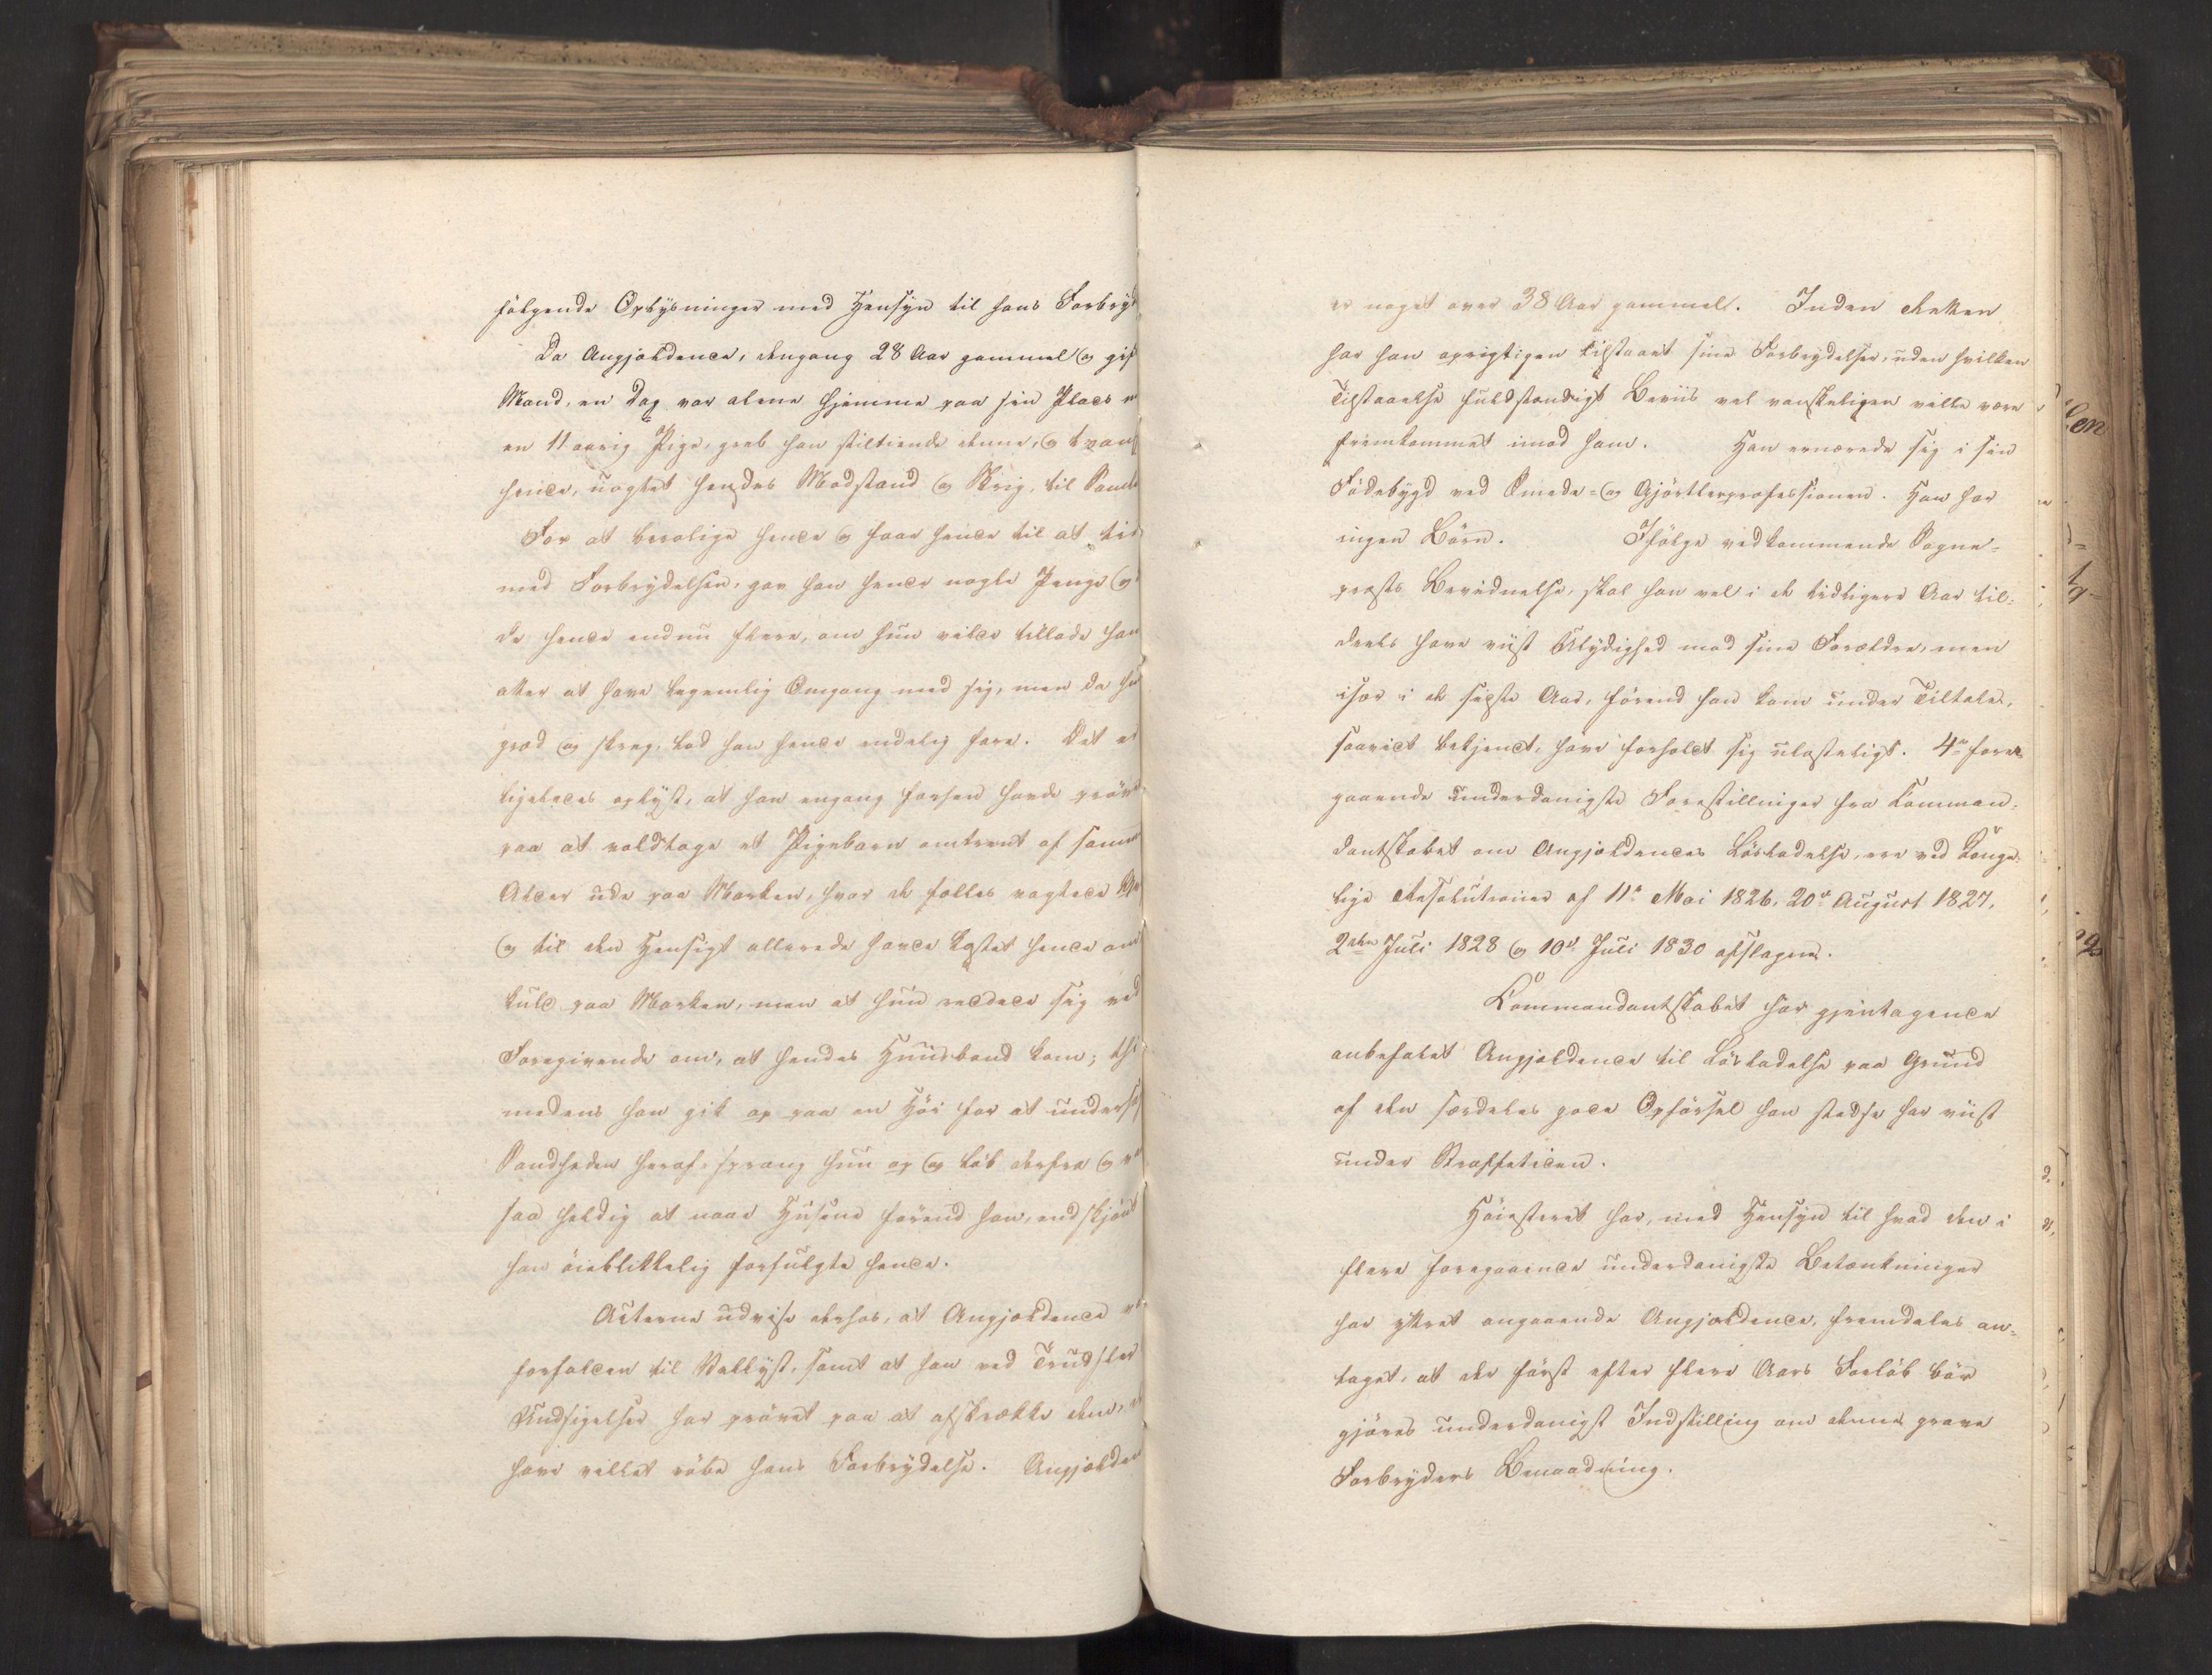 følgende Oplysninger med Hensyn til hans Forbryd
Da Angjældende, dengang 28 Aar gammel og gift
Mand, en Dag var alene hjemme paa sin Plads m
en 11 aarig Pige, greb han stiltiende denne, og tvang
hende, uagtet hendes Modstand og Skrig, til Samle
For at berolige hende og faae hende til at tie
med Forbrydelsen, gav han hende nogle Penge og
de hende endnu flere, om hun vilde tillade ham
atter at have legemlig Omgang med sig, men da hun
græd og skreg, lod han hende endelig fare. Det er
ligeledes oplyst, at han engang forhen havde prøvet
paa at voldtage et Pigebarn omtrent af samme
Alder ude paa Marken, hvor de fælles vogtede
og til den Hensigt allerede havde kastet hende om
kuld paa Marken, men at hun reddede sig ved
Foregivende om, at hendes Huusbond kom; thi
medens han gik op paa en Høi for at undersøge
Sandheden heraf, sprang hun op og løb derfra og va
saa heldig at naae Husene førend han, endskjønt
han øieblikkelig forfulgte hende.
Acterne udvise derhos, at Angjældende
forfalden til Vellyst, samt at han ved Trudsler
Undsigelser har prøvet paa at afskrække dem,
have villet røbe hans Forbrydelse. Angjældende
er noget over 38 Aar gammel. Inden Retten
har han oprigtigen tilstaaet sine Forbrydelser, uden hvilken
Tilstaaelse fuldstændigt Beviis vel vanskeligen vilde være
fremkommet imod ham. Han ernærede sig i sin
Fødebygd ved Smede- og Gjørtlerprofessionen. Han har
ingen Børn. Ifølge vedkommende Sogne-
præsts Bevidnelse, skal han vel i de tidligere Aar til-
deels have viist Ulydighed mod sine Forældre, men
især i de sidste Aar, førend han kom under Tiltale,
saavidt bekjendt, have forholdt sig ulasteligt. 4re fore-
gaaende underdanigste Forestillinger fra Komman-
dantskabet om Angjældendes Løsladelse, ere ved Konge-
lige Resolutioner af 11te Mai 1826, 20de August 1827,
2den Juli 1828 og 10de Juli 1830 afslagne.
Kommandantskabet har gjentagende
anbefalet Angjældende til Løsladelse paa Grund
af den særdeles gode Opførsel han stedse har viist
under Straffetiden.
Høiesteret har, med Hensyn til hvad den i
flere foregaaende underdanigste Betænkninger
har yttret angaaende Angjældende, fremdeles an-
taget, at der først efter flere Aars Forløb bør
gjøres underdanigst Indstilling om denne grove
Forbryders Benaadning.